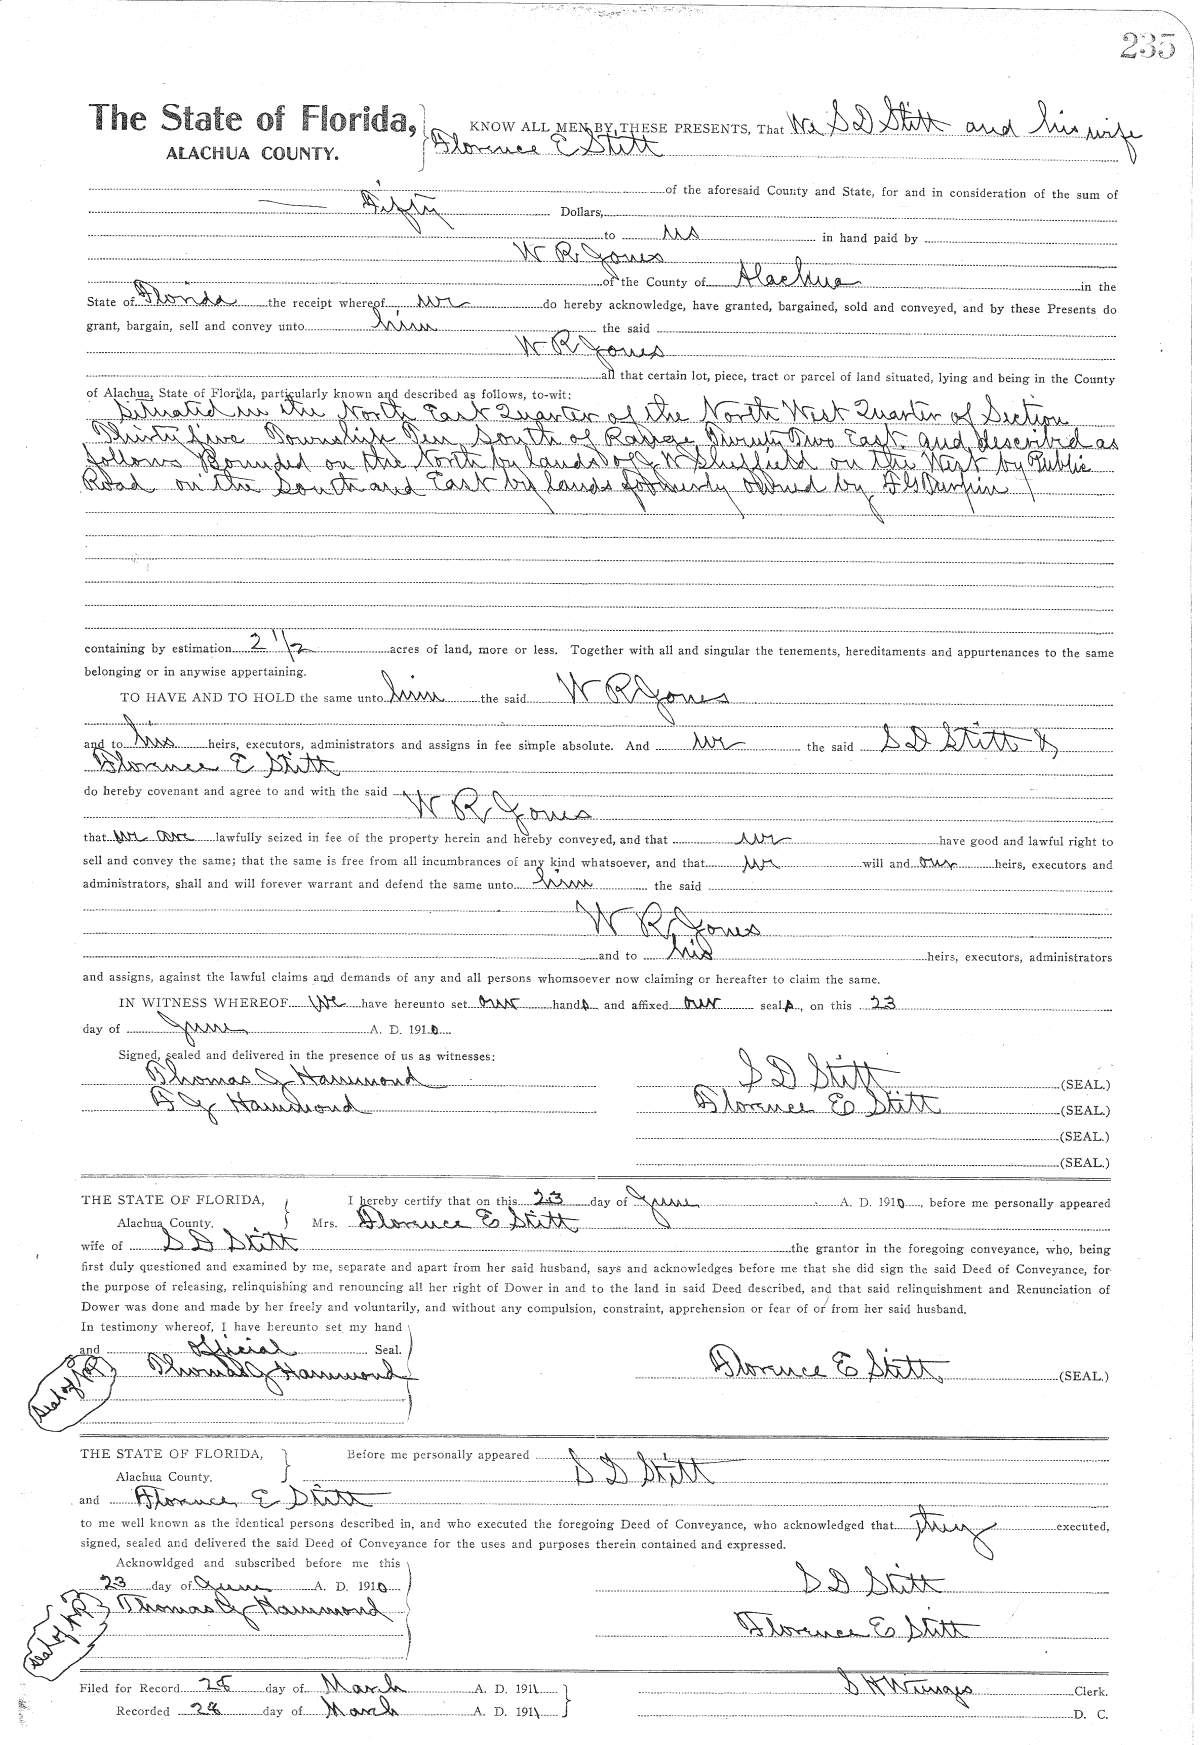 235
The State of Florida, KNOW ALL MEN BY THESE PRESENTS, That We S D Stitt and his wife
ALACHUA COUNTY. Florence E Stitt
of the aforesaid County and State, for and in consideration of the sum of
Fifty Dollars,
to us in hand paid by
W R Jones
of the County of Alachua in the
State of Florida the receipt whereof we do hereby acknowledge, have granted, bargained, sold and conveyed, and by these Presents do
grant, bargain, sell and convey unto him the said
W R Jones
all that certain lot, piece, tract or parcel of land situated, lying and being in the County
of Alachua, State of Florida, particularly known and described as follows, to-wit:
Situated in the North East Quarter of the North West Quarter of Section
Thirty five Township Ten South of Range Twenty Two East and described as
follows Bounded on the North by lands of J W Sheffield on the West by Public
Road on the South and East by lands formerly owned by F G
containing by estimation 2 1/2 acres of land, more or less. Together with all and singular the tenements, hereditaments and appurtenances to the same
belonging or in anywise appertaining.
TO HAVE AND TO HOLD the same unto him the said W R Jones
and to his heirs, executors, administrators and assigns in fee simple absolute. And we the said S D Stitt &
Florence E Stitt
do hereby covenant and agree to and with the said
W R Jones
that we are lawfully seized in fee of the property herein and hereby conveyed, and that we have good and lawful right to
sell and convey the same; that the same is free from all incumbrances of any kind whatsoever, and that we will and our heirs, executors and
administrators, shall and will forever warrant and defend the same unto him the said
W R Jones
and to his heirs, executors, administrators
and assigns, against the lawful claims and demands of any and all persons whomsoever now claiming or hereafter to claim the same.
IN WITNESS WHEREOF We have hereunto set our hands and affixed our seals, on this 23
day of June A. D. 1910
Signed, sealed and delivered in the presence of us as witnesses:
Thomas J Hammond S D Stitt (SEAL.)
F J Hammond Florence E Stitt (SEAL.)
(SEAL.)
(SEAL.)
THE STATE OF FLORIDA, I hereby certify that on this 23 day of June A. D. 1910, before me personally appeared
Alachua County. Mrs. Florence E Stitt
wife of S D Stitt the grantor in the foregoing conveyance, who, being
first duly questioned and examined by me, separate and apart from her said husband, says and acknowledges before me that she did sign the said Deed of Conveyance, for
the purpose of releasing, relinquishing and renouncing all her right of Dower in and to the land in said Deed described, and that said relinquishment and Renunciation of
Dower was done and made by her freely and voluntarily, and without any compulsion, constraint, apprehension or fear of or from her said husband.
In testimony whereof, I have hereunto set my hand
and official Seal.
Seal of N P Thomas J Hammond Florence E Stitt (SEAL.)
THE STATE OF FLORIDA, Before me personally appeared
Alachua County. S D Stitt
and Florence E Stitt
to me well known as the identical persons described in, and who executed the foregoing Deed of Conveyance, who acknowledged that they executed,
signed, sealed and delivered the said Deed of Conveyance for the uses and purposes therein contained and expressed.
Acknowldged and subscribed before me this
23 day of June A. D. 1910 S D Stitt
Seal of N P Thomas J Hammond Florence E Stitt
Filed for Record 28 day of March A. D. 1911 S H Wienges Clerk.
Recorded 28 day of March A. D. 1911 D. C.